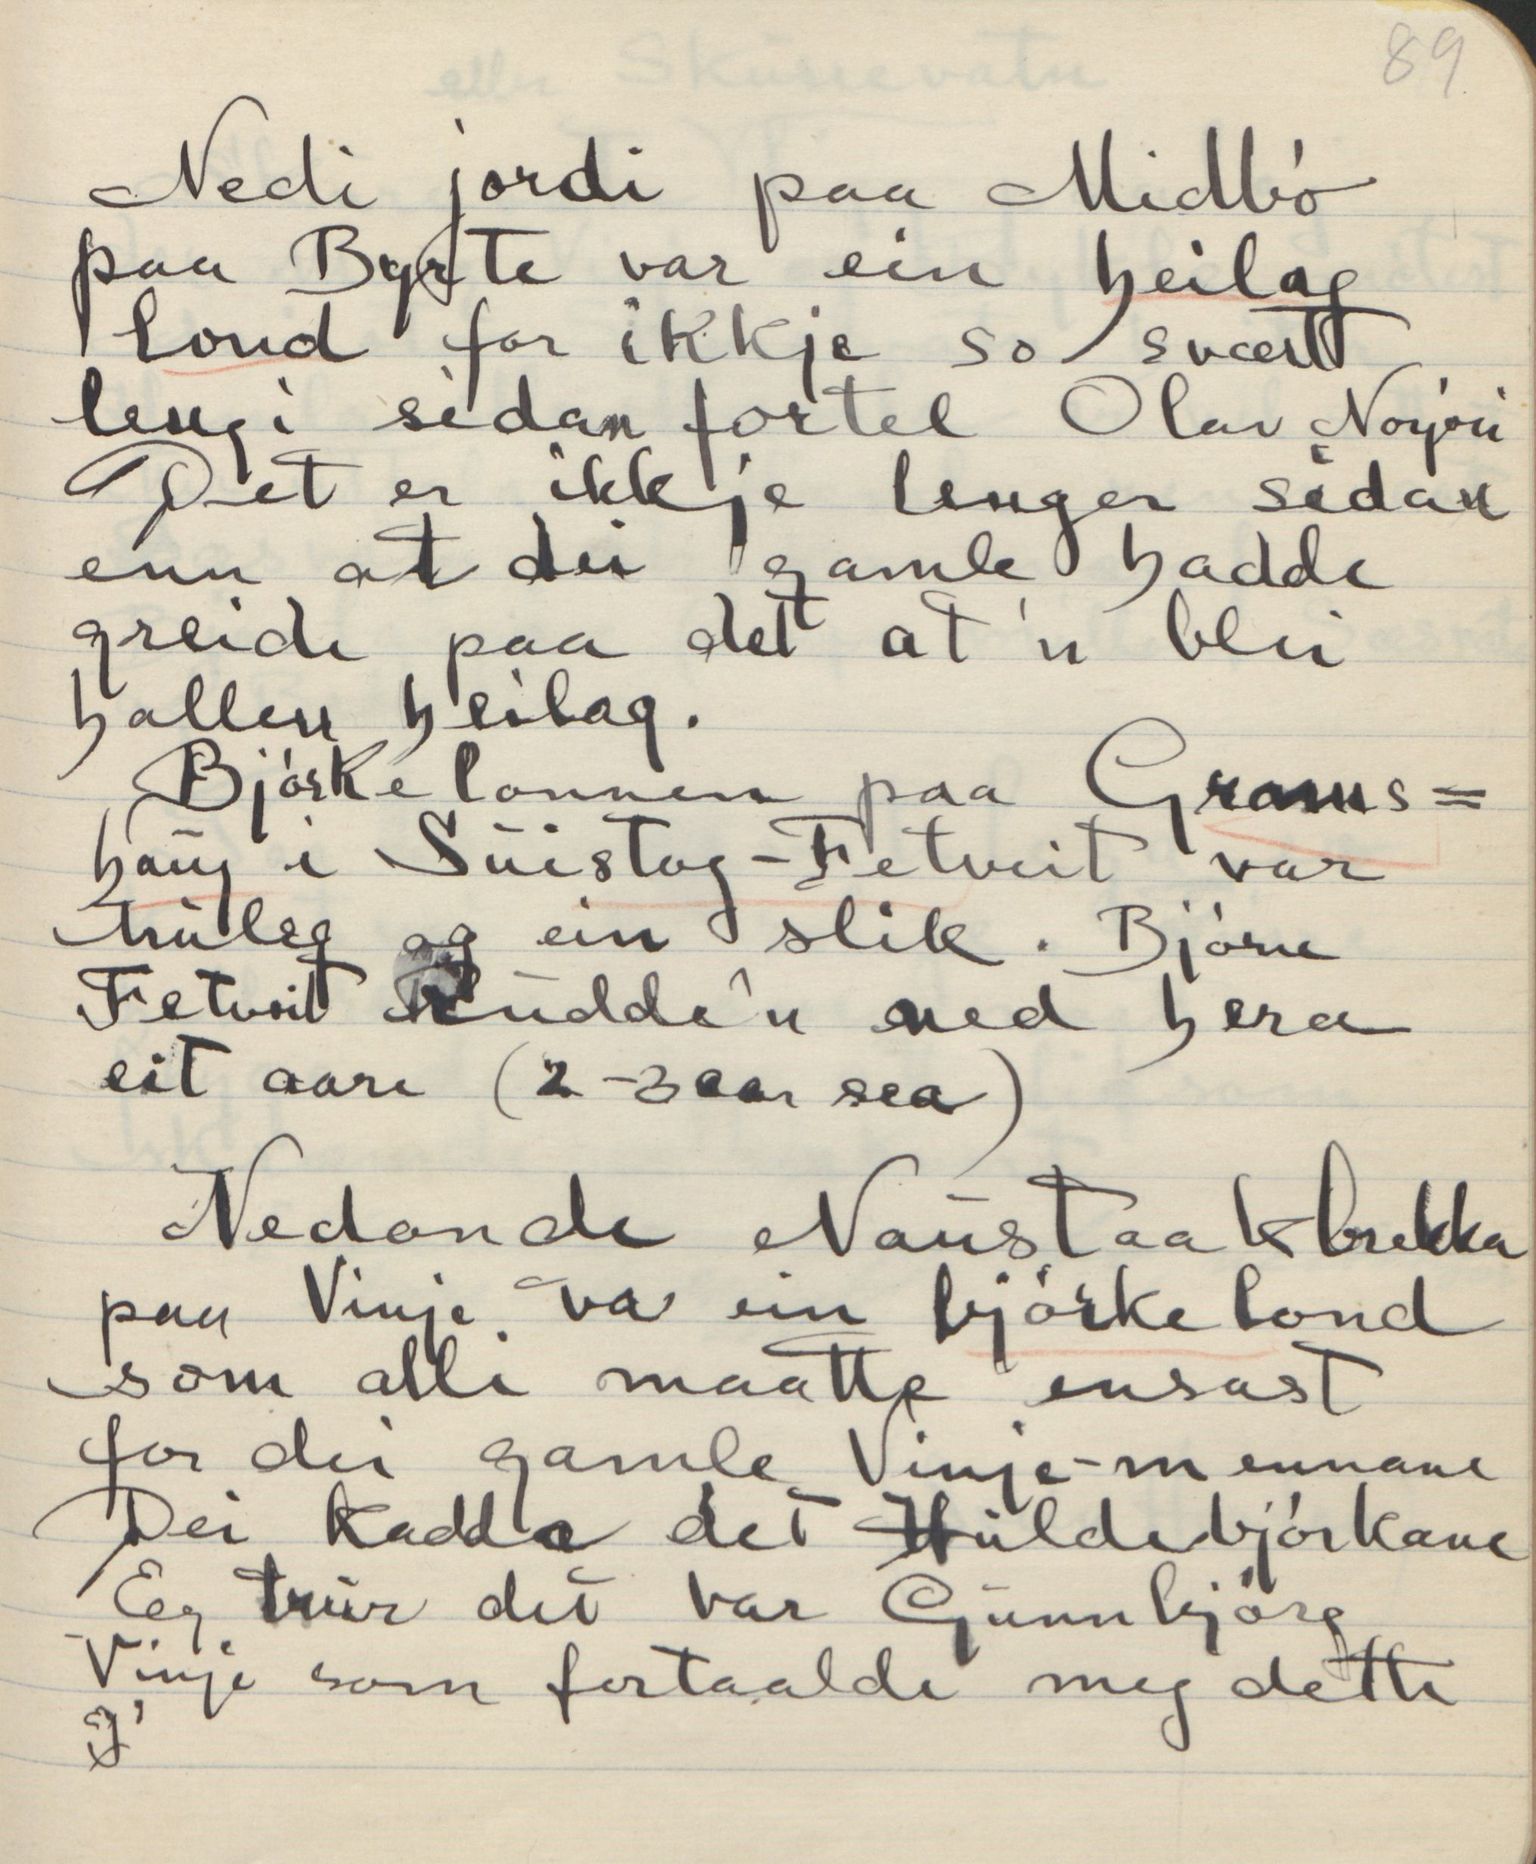 89
Nedi jordi paa Midbó
paa Byrte var ein heilag
lond for ikkje so svært
lengi sidan fortel Olav
Det er ikkje lenger sidan
enn at dei gamle hadde
greide paa det at'n blei
hallen heilag.
Bjórkelonnen paa Grams=
haug i Súistog-Fetveit var
truleg og ein slik. Bjórne
Fetveit rudde'n ned hera
eit aare (2-3 aar sea)
Nedande Naustaakbrekka
paa Vinje va ein bjórkelond
som alli maatte ensast
for dei gamle Vinje-mennane
Dei kadda det Huldebjórkane
Eeg trur det var Gunnbjórg
Vinje som fortaalde meg dette